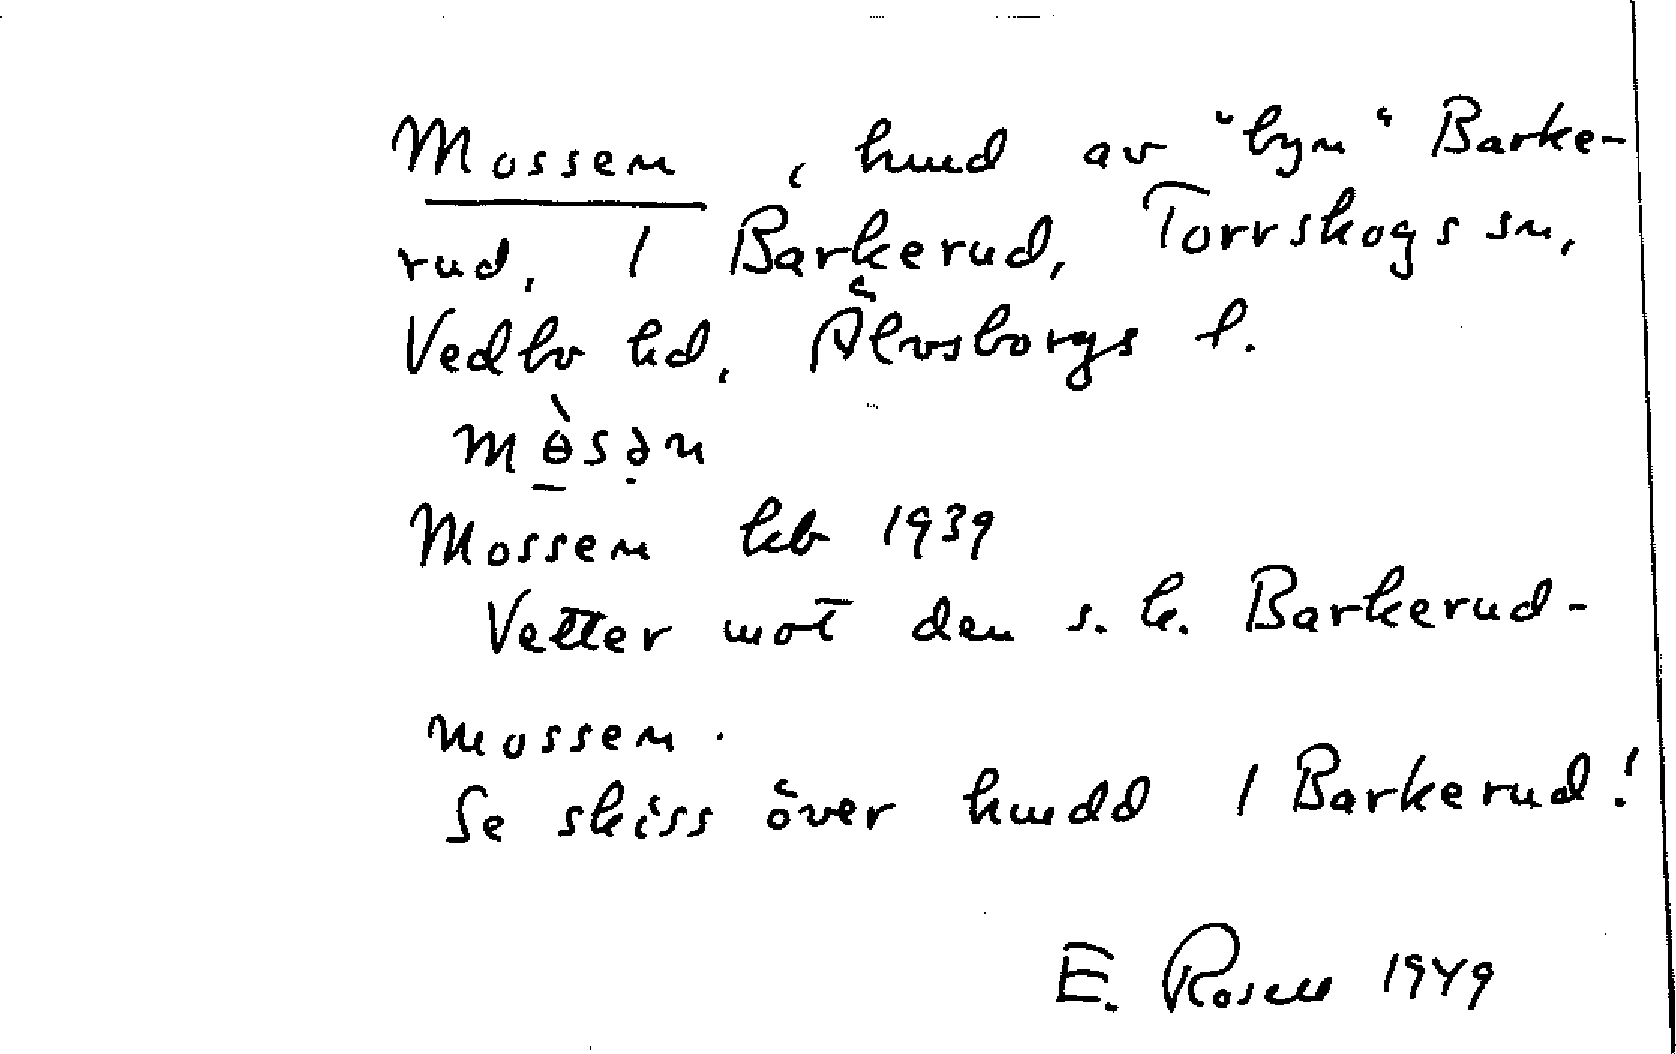 Mossen, hmd av "byn" Barke-
rud, 1 Barkerud, Torrskogs sn,
Vedbo hd, Älvsborgs l.
mɵ̀sə̣n
Mossen kb 1939
Vetter mot den s. k. Barkerud-
mossen.
Se skiss över hmdd 1 Barkerud!
E. Rosell 1949